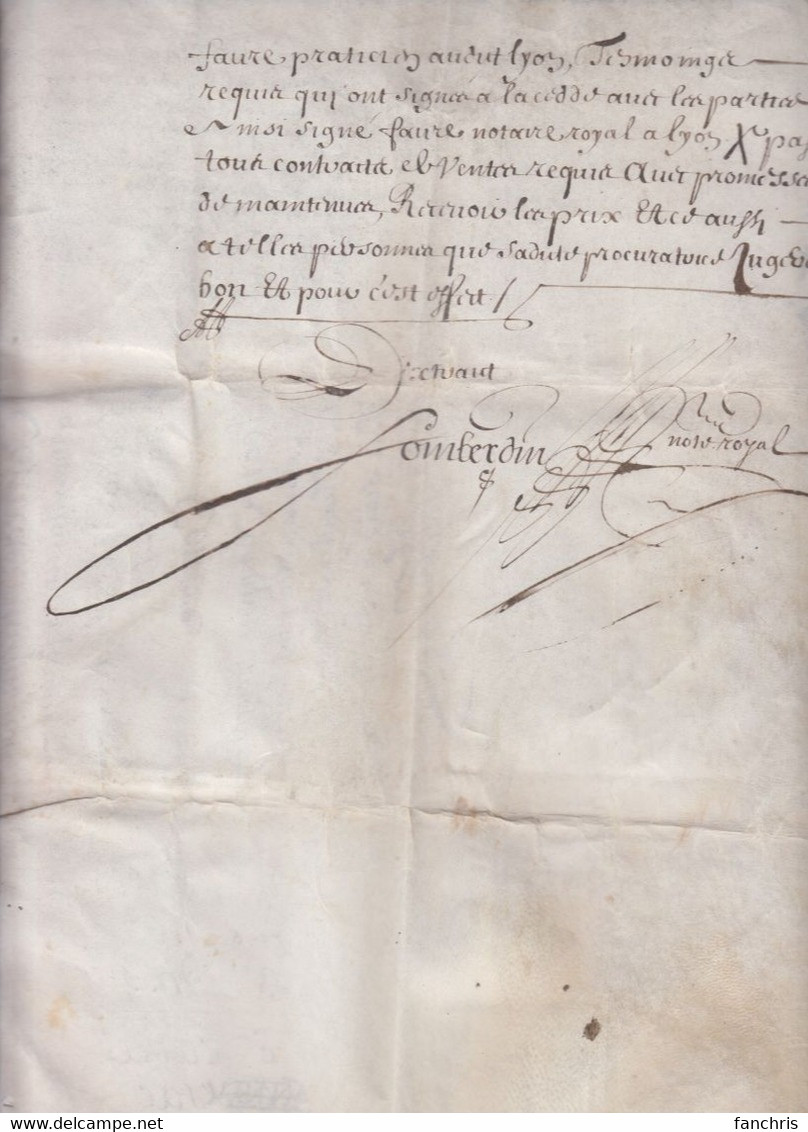 faure praticien audit lyon, Tesmoings
requis qui ont signés a la cedde avec les parties
et insi signé faure notaire royal a lyon X pas
tous contracts et Ventes requis Avec promesse
de maintenir, Recevoir les prix Et ce aussi
a telles personnes que sadite procuratrice Jugera
bon Et pour c'est effect /
Extraict
note royal
www.delcampe.net
fanchris